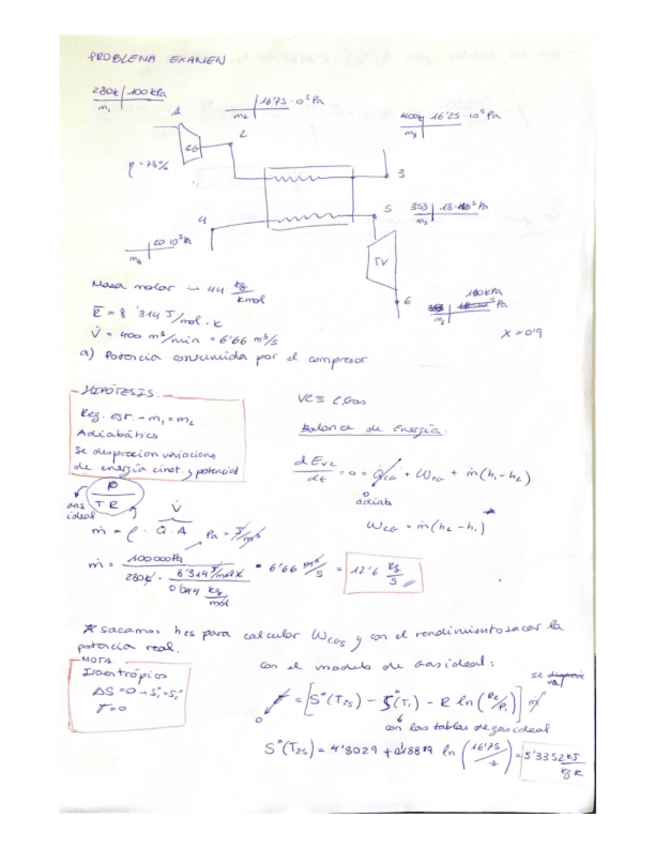 PROBLEMA EXAMEN
280K | 100kPa
m₁
1
16'75·10⁵ Pa
m₂
2
400K | 16'25·10⁵ Pa
m₃
CG
η = 75%
3
5
353 | 13·10⁵ Pa
m₅
4
20·10⁵ Pa
m₄
TV
6
180kPa
Pa
m₆
X = 0'9
Masa molar → 44 kg/kmol
R̅ = 8'314 J/mol·K
V̇ = 400 m³/min = 6'66 m³/s
a) Potencia consumida por el compresor
HIPÓTESIS:
Reg. est. → m₁ = m₂
Adiabático
Se desprecian variaciones
de energía cinet. y potencial
VC ≡ C.Gas
Balance de Energía:
dE_VC/dt = 0 = Q̇_CG + Ẇ_CG + ṁ(h₁-h₂)
0
adiab.
Ẇ_CG = ṁ(h₂-h₁)*
P/TR
gas ideal
V̇
ṁ = ρ · Q · A
Pa = J/m³
ṁ = 100000Pa / (280K · 8'314 J/mol K / 0'044 kg/mol) · 6'66 m³/s = 12'6 kg/s
* sacamos h₂s para calcular Ẇ_CGs y con el rendimiento sacar la
potencia real.
NOTA
Isoentrópico
ΔS = 0
σ = 0
con el modelo de Gas ideal:
se va
σ = [S°(T₂s) - S°(T₁) - R ln(P₂/P₁)] ṁ
0
con las tablas de gas ideal
S°(T₂s) = 4'8029 + 0'18879 ln(16'75/1) = 5'3352 kJ/kg K